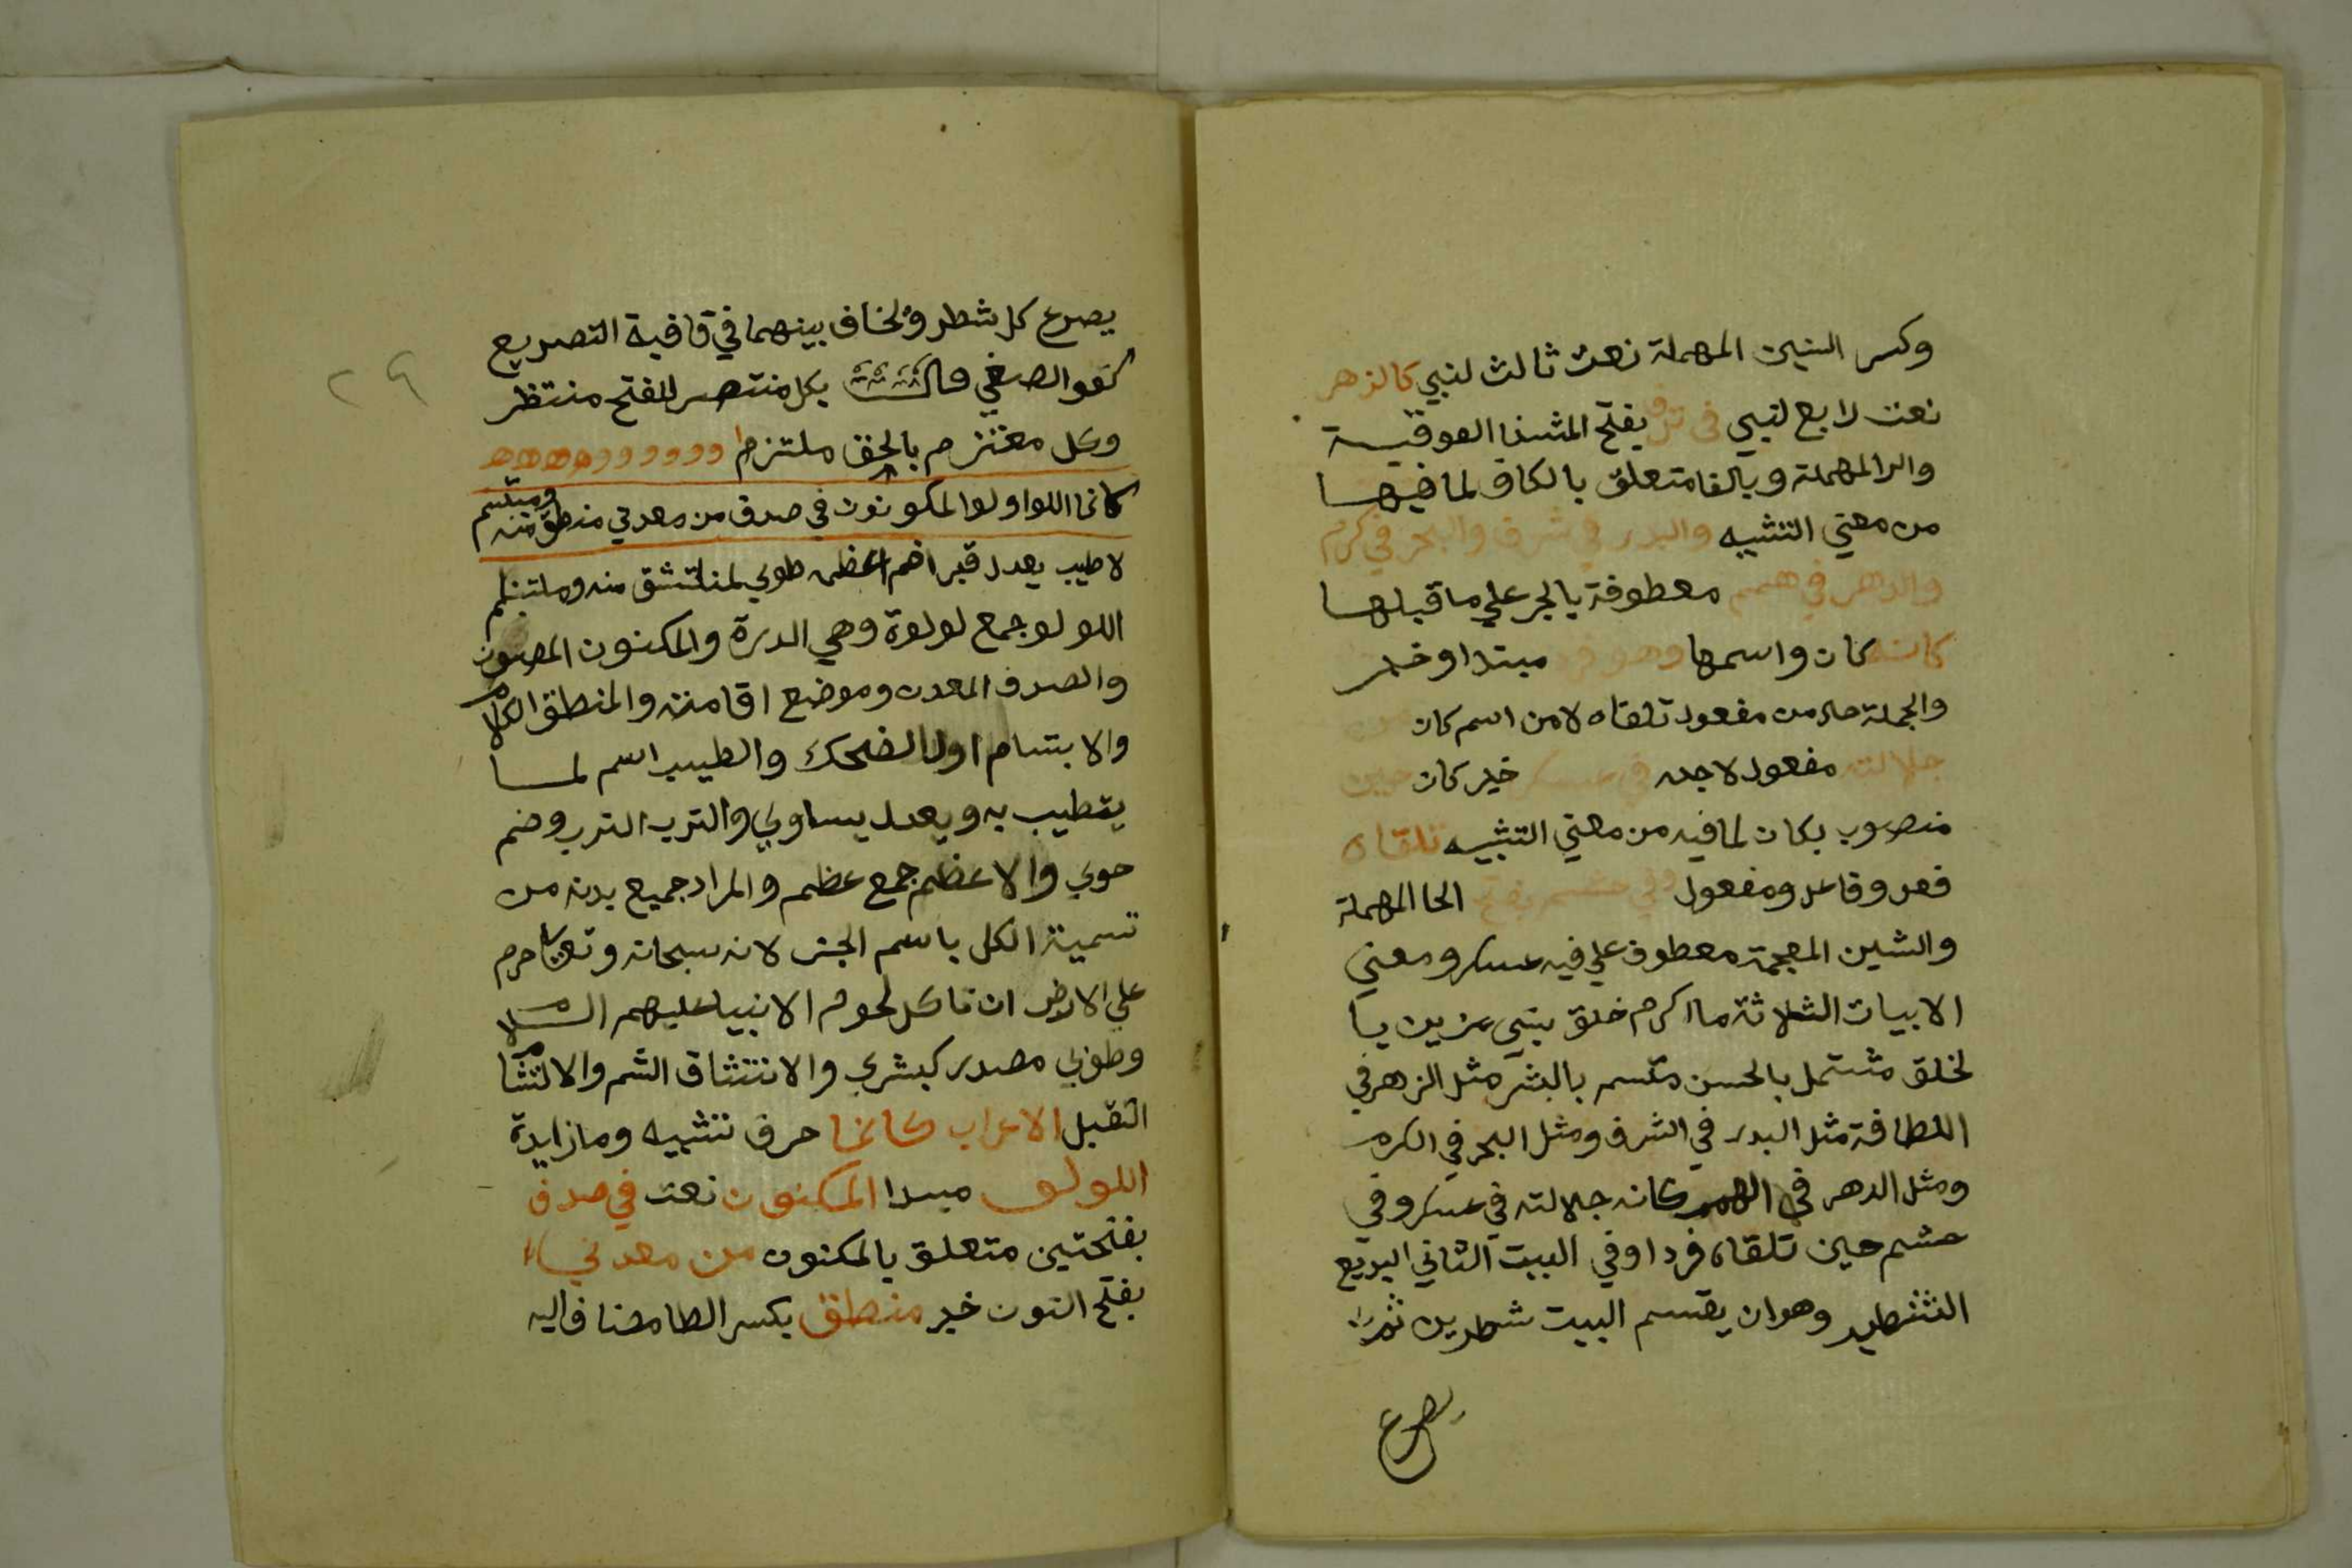 وكسر السين المهملة نعت ثالث لنبي كالزهر
نعت رابع لنبي في ترف بفتح المثناة الفوقيــة
والرا المهملة وبالفا متعلق بالكاف لما فيهــا
من معني التشبيه والبدر في شرف والبحر في كرم
والدهر في همم معطوفة بالجر علي ما قبلهــا
كانه كان واسمها وهو فرد مبتدا وخبر
والجملة حال من مفعول تلقاه لا من اسم كان
جلالته مفعول لاجله في عسكر خبر كان حين
منصوب بكان لما فيه من معني التشبيه تلقاه
فعل وفاعل ومفعول وفي حشم بفتح الحا المهملة
والشين المعجمة معطوف علي فيه عسكر ومعني
الابيات الثلاثة ما اكرم خلق نبي مزين يا
لخلق مشتمل بالحسن متسم بالبشر مثل الزهر في
اللطافة مثل البدر في الشرف ومثل البحر في الكرم
ومثل الدهر في الهمم كانه جلالته في عسكر وفي
حشم حين تلقاه فردا وفي البيت الثاني البديع
التشطير وهو ان يقسم البيت شطرين ثم
يصرع
٢٩
يصرع كل شطر ويخاف بينهما في قافية التصريع
كقو الصفي بكل منتصر للفتح منتظر
وكل معتزم بالحق ملتزم
كانما اللواولوا المكونون في صدف من معدني منطق منه ومبتسم
لا طيب يعدل قبرا ضم اعظمه طوبي لمنتشق منه وملتثم
اللولو جمع لولوة وهي الدرة والمكنون المصون
والصدف المعدن وموضع اقامته والمنطق الكلام
والابتسام اول الضحك والطيب اسم لمــا
يتطيب به ويعدل يساوي والترب الترب وضم
حوي والاعظم جمع عظم والمراد جميع بدنه من
تسمية الكل باسم الجز لانه سبحانه وتعالي حرم
علي الارض ان تاكل لحوم الانبيا عليهم السلام
وطوبي مصدر كبشري والانتشاق الشم والالتثام
التقبل الاعراب كانما حرف تشبيه وما زايدة
اللولو مبدا المكنون نعت في صدف
بفتحتين متعلق بالمكنون من معدني
بفتح النون خبر منطق بكسر الطا مضاف اليه